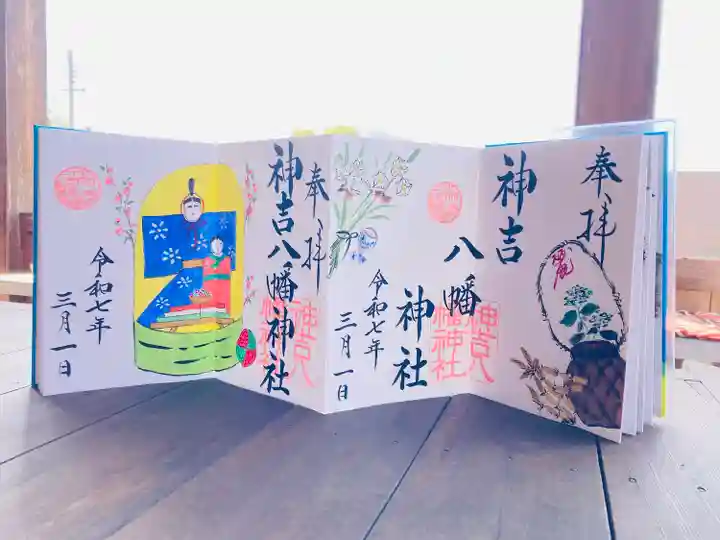 奉拝
神吉八幡神社
令和七年
三月一日
奉拝
神吉
八幡
神社
神吉八
幡神社
令和七年
三月一日